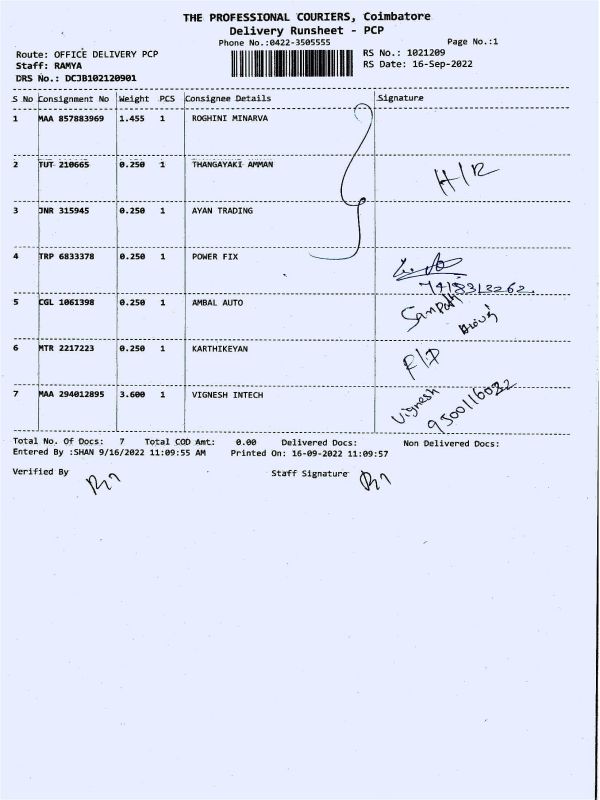 THE PROFESSIONAL COURIERS, Coimbatore
Delivery Runsheet - PCP
Phone No.:0422-3505555 Page No.:1
Route: OFFICE DELIVERY PCP RS No.: 1021209
Staff: RAMYA RS Date: 16-Sep-2022
DRS No.: DCJB102120901
S No Consignment No Weight PCS Consignee Details Signature
1 MAA 857883969 1.455 1 ROGHINI MINARVA
2 TUT 210665 0.250 1 THANGAYAKI AMMAN H/R
3 JNR 315945 0.250 1 AYAN TRADING
4 TRP 6833378 0.250 1 POWER FIX
7418313262
5 CGL 1061398 0.250 1 AMBAL AUTO Sampath
6 MTR 2217223 0.250 1 KARTHIKEYAN
7 MAA 294012895 3.600 1 VIGNESH INTECH Vignesh
Total No. Of Docs: 7 Total COD Amt: 0.00 Delivered Docs: Non Delivered Docs:
Entered By :SHAN 9/16/2022 11:09:55 AM Printed On: 16-09-2022 11:09:57
Verified By Staff Signature